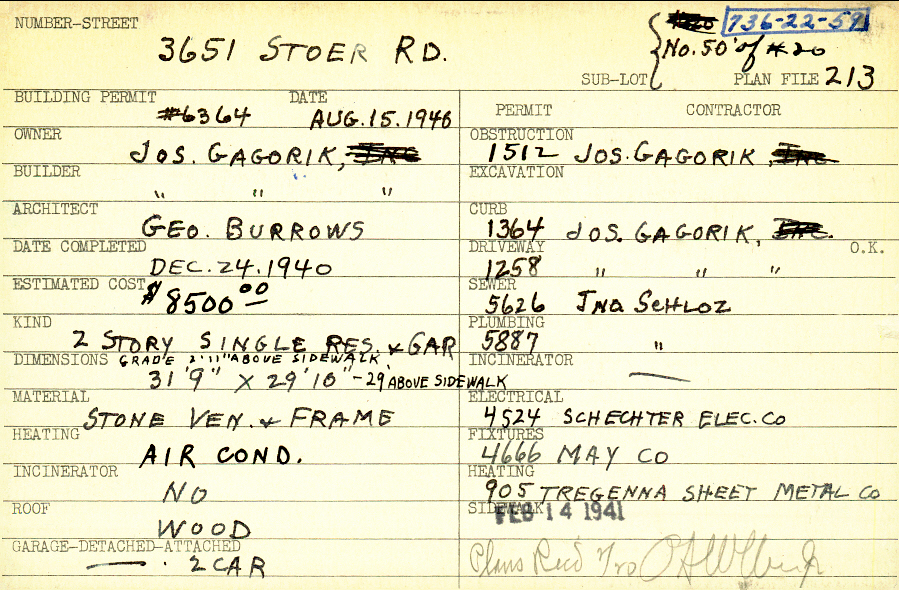 NUMBER-STREET
3651 STOER RD.
736-22-59
No. 50' of #20
SUB-LOT PLAN FILE 213
BUILDING PERMIT DATE
#6364 AUG. 15. 1940
PERMIT CONTRACTOR
OWNER
JOS. GAGORIK,
OBSTRUCTION
1512 JOS. GAGORIK,
BUILDER
" " "
EXCAVATION
ARCHITECT
GEO. BURROWS
CURB
1364 JOS. GAGORIK,
DATE COMPLETED
DEC. 24. 1940
DRIVEWAY O.K.
1258 " " "
ESTIMATED COST
$8500.00
SEWER
5626 JNO SCHLOZ
KIND
2 STORY SINGLE RES. & GAR
PLUMBING
5887 "
DIMENSIONS GRADE 2'11" ABOVE SIDEWALK
31'9" X 29'10" - 29' ABOVE SIDEWALK
INCINERATOR
—
MATERIAL
STONE VEN. & FRAME
ELECTRICAL
4524 SCHECHTER ELEC. CO
HEATING
AIR COND.
FIXTURES
4666 MAY CO
INCINERATOR
NO
HEATING
905 TREGENNA SHEET METAL CO
ROOF
WOOD
SIDEWALK
FEB 14 1941
GARAGE-DETACHED-ATTACHED
— . 2 CAR
Plans Rec'd